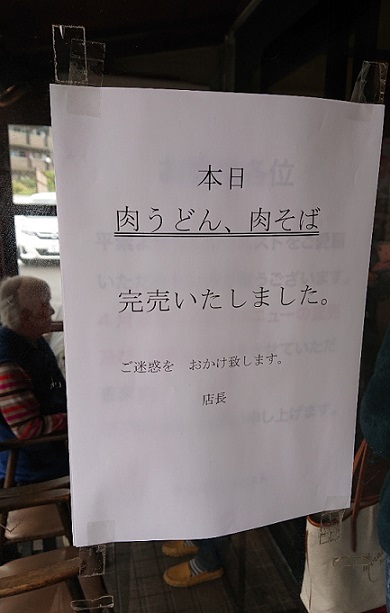 本日
肉うどん、肉そば
完売いたしました。
ご迷惑を　おかけ致します。
店長